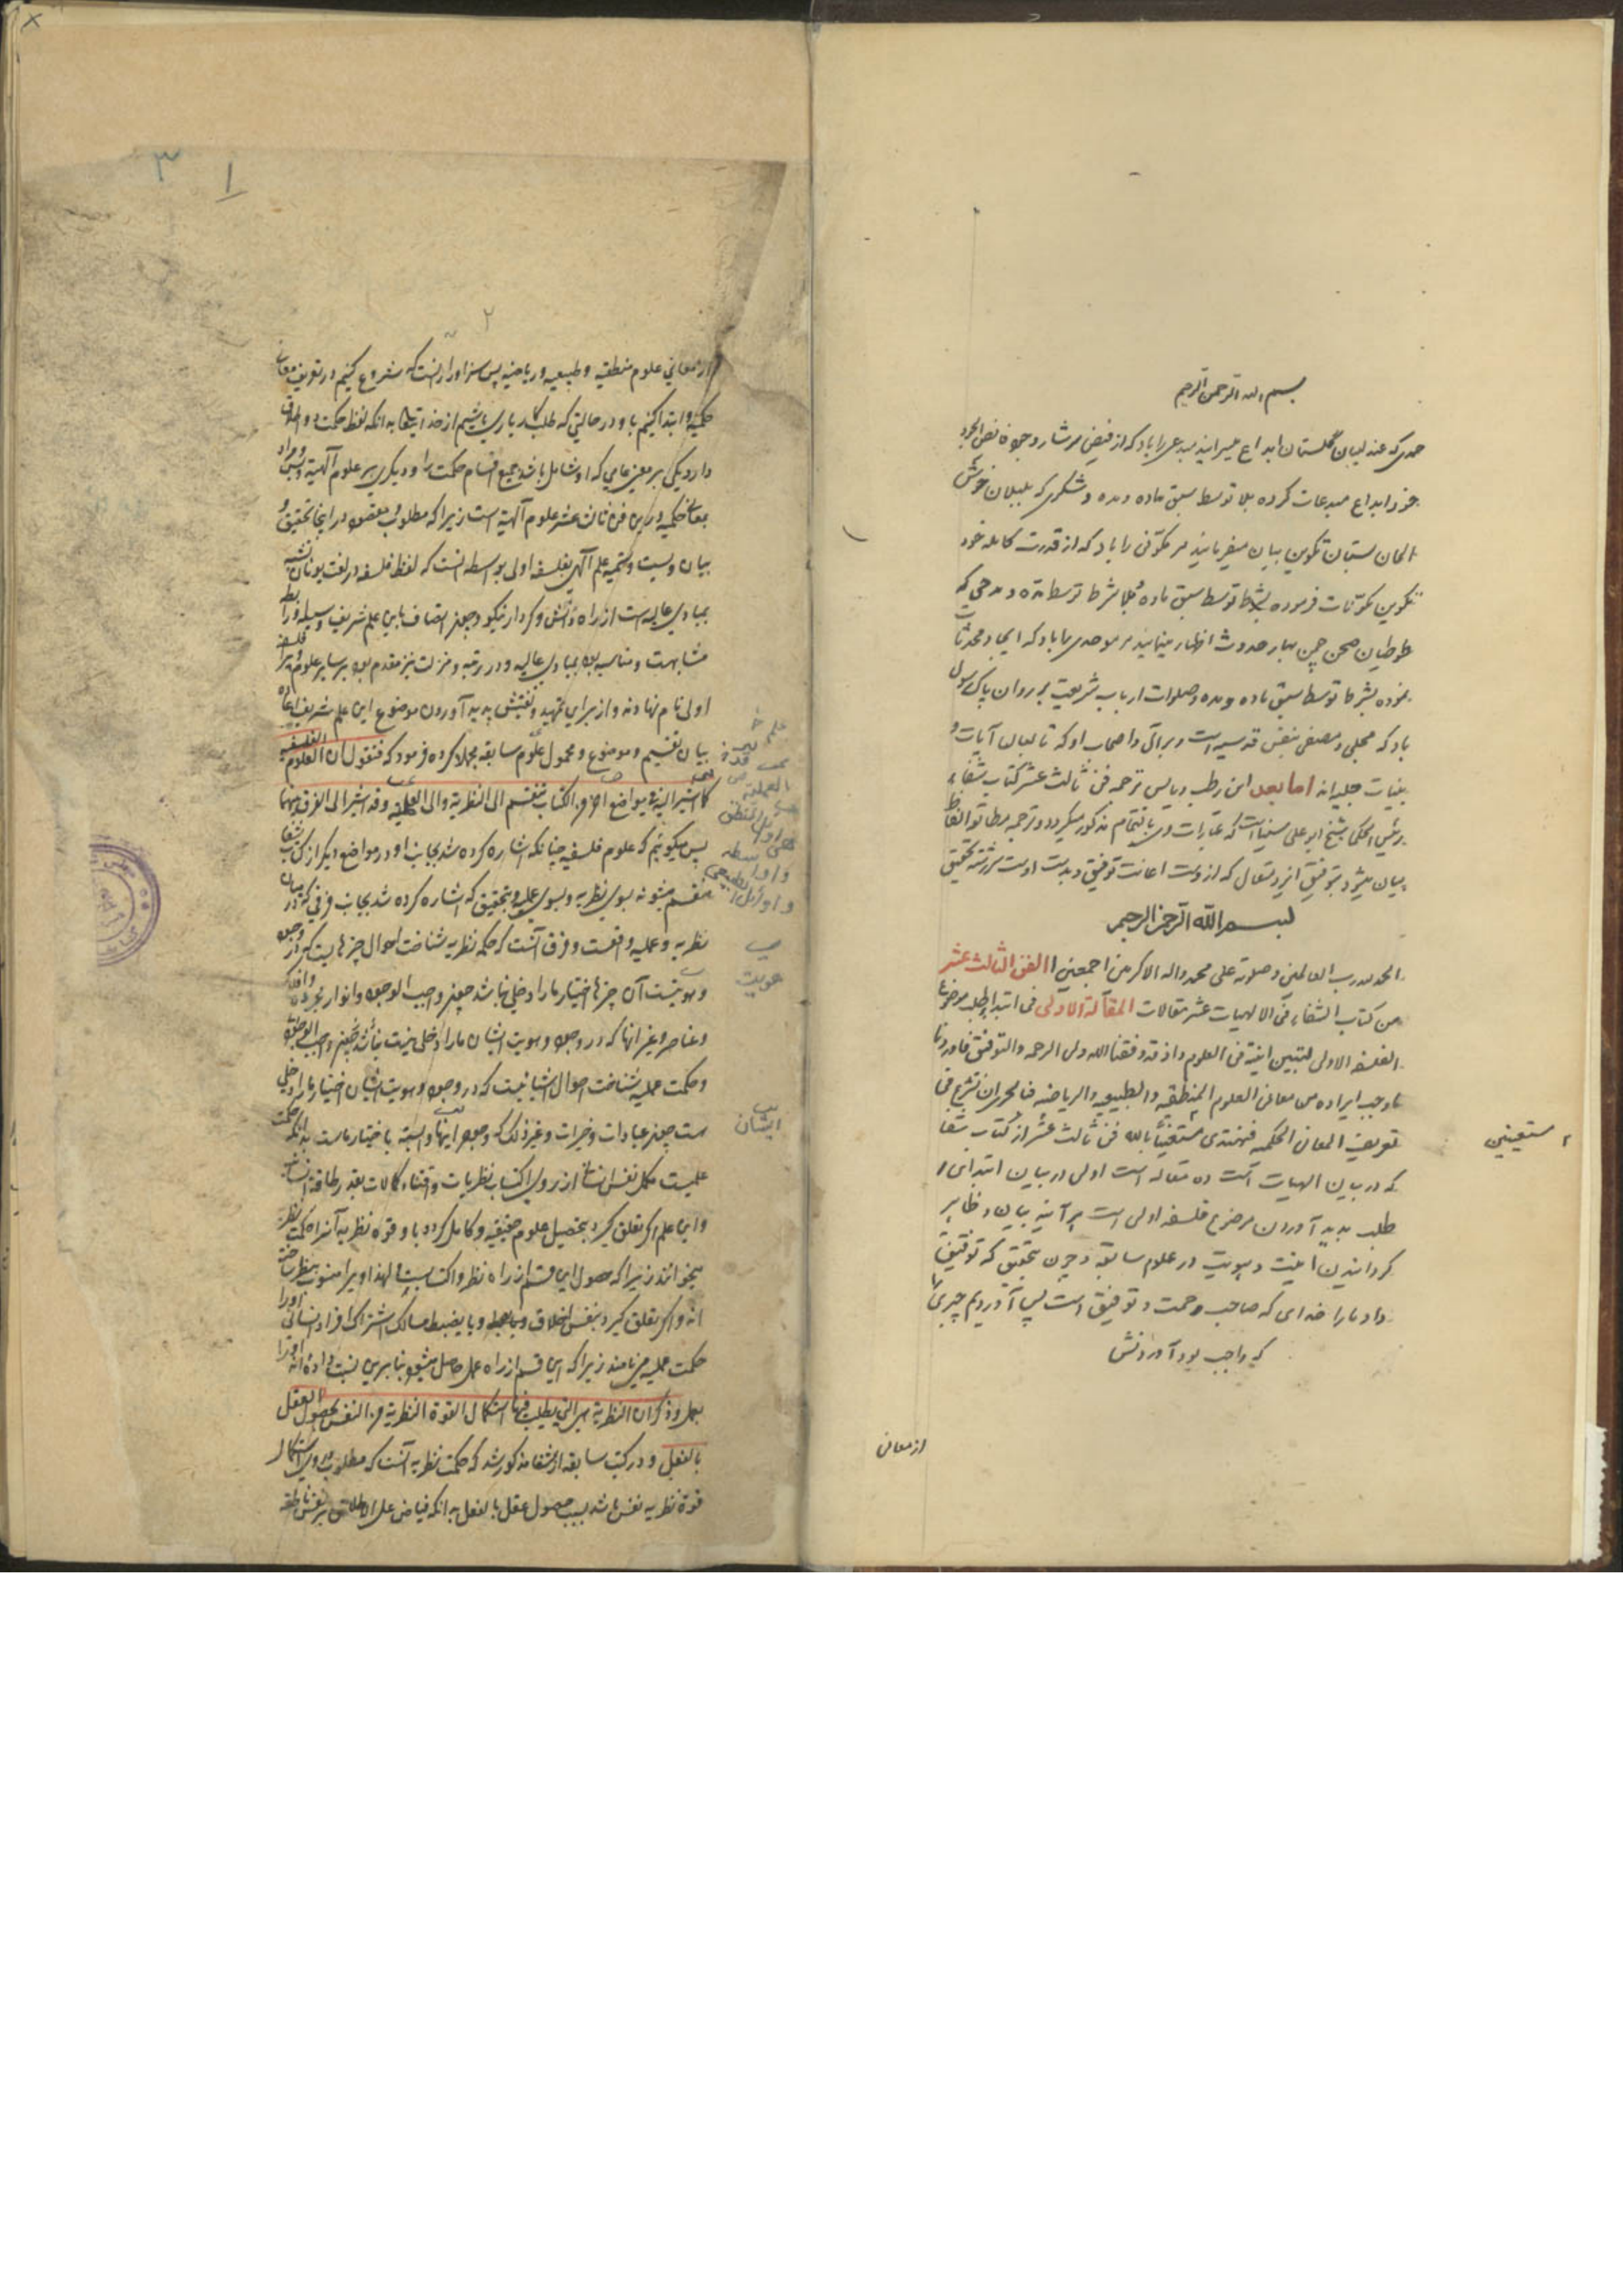 بسم الله الرحمن الرحیم
حمدی که عندلیبان گلستان ابداع میسرایند مبدعی را باد که از فیض سرشار وجود
خود ابداع مبدعات کرده بلا توسط سبق ماده و مده و شکری که بلبلان خوش
الحان بستان تکوین بیان میفرمایند مر مکونی را باد که از قدرت کامله خود
تکوین مکونات فرموده بشرط توسط سبق ماده بلا شرط توسط مده و مدحی که
طوطیان صحن چمن بهار حدوث اظهار مینمایند مر موحدی را باد که ایجاد محدثات
نموده بشرط توسط سبق ماده و مده و صلوات ارباب شریعت بر روان پاک رسول
باد که محلی و مصفی بنفس قدسیه است و بر آل و اصحاب او که تالیان آیات و
بینات جلیه اند اما بعد این رطب و یابس ترجمه فن ثالث عشر کتاب شفاء
رئیس الحکما شیخ ابو علی سیناست که عبارات وی بالتمام مذکور میگردد و ترجمه مطابق الفاظ
بیان میشود بتوفیق ایزد متعال که ازوست اعانت توفیق و بدست اوست سررشته تحقیق
بسم الله الرحمن الرحیم
الحمد لله رب العالمین و صلوته علی محمد و اله الاکرمین اجمعین الفن الثالث عشر
من کتاب الشفاء فی الالهیات عشر مقالات المقالة الاولی فی ابتداء طلب موضوع
الفلسفه الاولی لتبیین انیته فی العلوم و اذ قد وفقنا الله ولی الرحمه و التوفیق فاوردنا
ما وجب ایراده من معانی العلوم المنطقیه و الطبیعیه و الریاضیه فبالحری ان نشرع فی
تعریف المعانی الحکمیه فنبتدی مستعینا بالله فن ثالث عشر از کتاب شفا
که در بیان الهیات است ده مقاله است اولی در بیان ابتدای
طلب پدید آوردن موضوع فلسفه اولی است هر آینه بیان و ظاهر
کردانیدن انیت و هویت در علوم سابقه و چون بتحقیق که توفیق
داد ما را خدای که صاحب رحمت و توفیق است پس آوردیم چیزی را
که واجب بود آوردنش
مستعینین
از معانی
۳ ۱
۲
از معانی علوم منطقیه و طبیعیه و ریاضیه پس سزاوار آنست که شروع کنیم در تعریف معانی
حکمیه و ابتدا کنیم باو در حالتی که طلب کار یاری باشیم از خدایتعالی بدانکه لفظ حکمت دو اطلاق
دارد یکی بر معنی عامی که او شامل باشد جمیع اقسام حکمت را و دیگری بر علوم آلهیه و بس و مراد
بمعانی حکمیه در این فن ثالث عشر علوم آلهیه است زیرا که مطلوب و مقصود در اینجا تحقیق و
بیان ویست و تسمیه علم آلهی بفلسفه اولی بواسطه آنست که لفظ فلسفه در لغت یونان تشبه
بمبادی عالیه است از راه دانش و کردار نیکو و چون اتصاف باین علم شریف وسیله و رابطه
مشابهت و مناسبه بود بمبادی عالیه و در رتبه و منزلت نیز مقدم بود بر سایر علوم ویرا فلسفه
اولی نام نهادند و از برای تمهید و تفتیش پدید آوردن موضوع این علم شریف اعاده
بیان تقسیم و موضوع و محمول علوم سابقه مجملا کرده فرمود که فنقول ان العلوم الفلسفیه
کما اشیر الیه فی مواضع اخری من الکتاب تنقسم الی النظریة والی العملیه وقد اشیر الی الفرق بینهما
پس میگوئیم که علوم فلسفیه چنانکه اشاره کرده شد بجانب او در مواضع دیگر از کتاب شفا
منقسم میشوند بسوی نظریه و بسوی عملیه و بتحقیق که اشاره کرده شد بجانب فرقی که در میان
نظریه و عملیه واقعست و فرق آنست که حکمه نظریه شناخت احوال چیزهاییست که در وجود
و هویت آن چیزها اختیار ما را دخلی نباشد چون واجب الوجود و انوار مجرده و افلاک
و عناصر و غیر انها که در وجود و هویت ایشان ما را دخلی نیست
و حکمت عملیه شناخت احوال اشیائیست که در وجود و هویت ایشان اختیار ما را دخلی
ست چون عبادات و خیرات و غیر ذلک که وجود اینها وابسته باختیار ماست بدانکه حکمت
علمیست مکمل نفس انسانی از روی اکتساب نظریات و اقتناء کمالات بقدر طاقة انسانی
و این علم اگر تعلق گیرد بتحصیل علوم حقیقیه و کامل گردد باو قوه نظریه آنرا حکمت نظریه
میخوانند زیرا که حصول این قسم از راه نظر و اکتسابست و لهذا ویرا منسوب بنظر ساخته
اند و اگر تعلق گیرد بنفس اخلاق و یا ضبط مسالک اشتراک افراد انسانی اورا
حکمت عملیه می نامند زیرا که این قسم از راه عمل حاصل میشود بنابرین نسبت داده اند اورا
بعمل وذکر ان النظریة هی التی یطلب فیها استکمال القوة النظریة من النفس بحصول العقل
بالفعل و در کتب سابقه از شفا مذکور شد که حکمت نظریه آنست که مطلوب در وی استکمال
قوة نظریه نفس باشد بسبب حصول عقل بالفعل بدانکه فیاض علی الاطلاق بر نفس ناطقه
هویت
ایشان